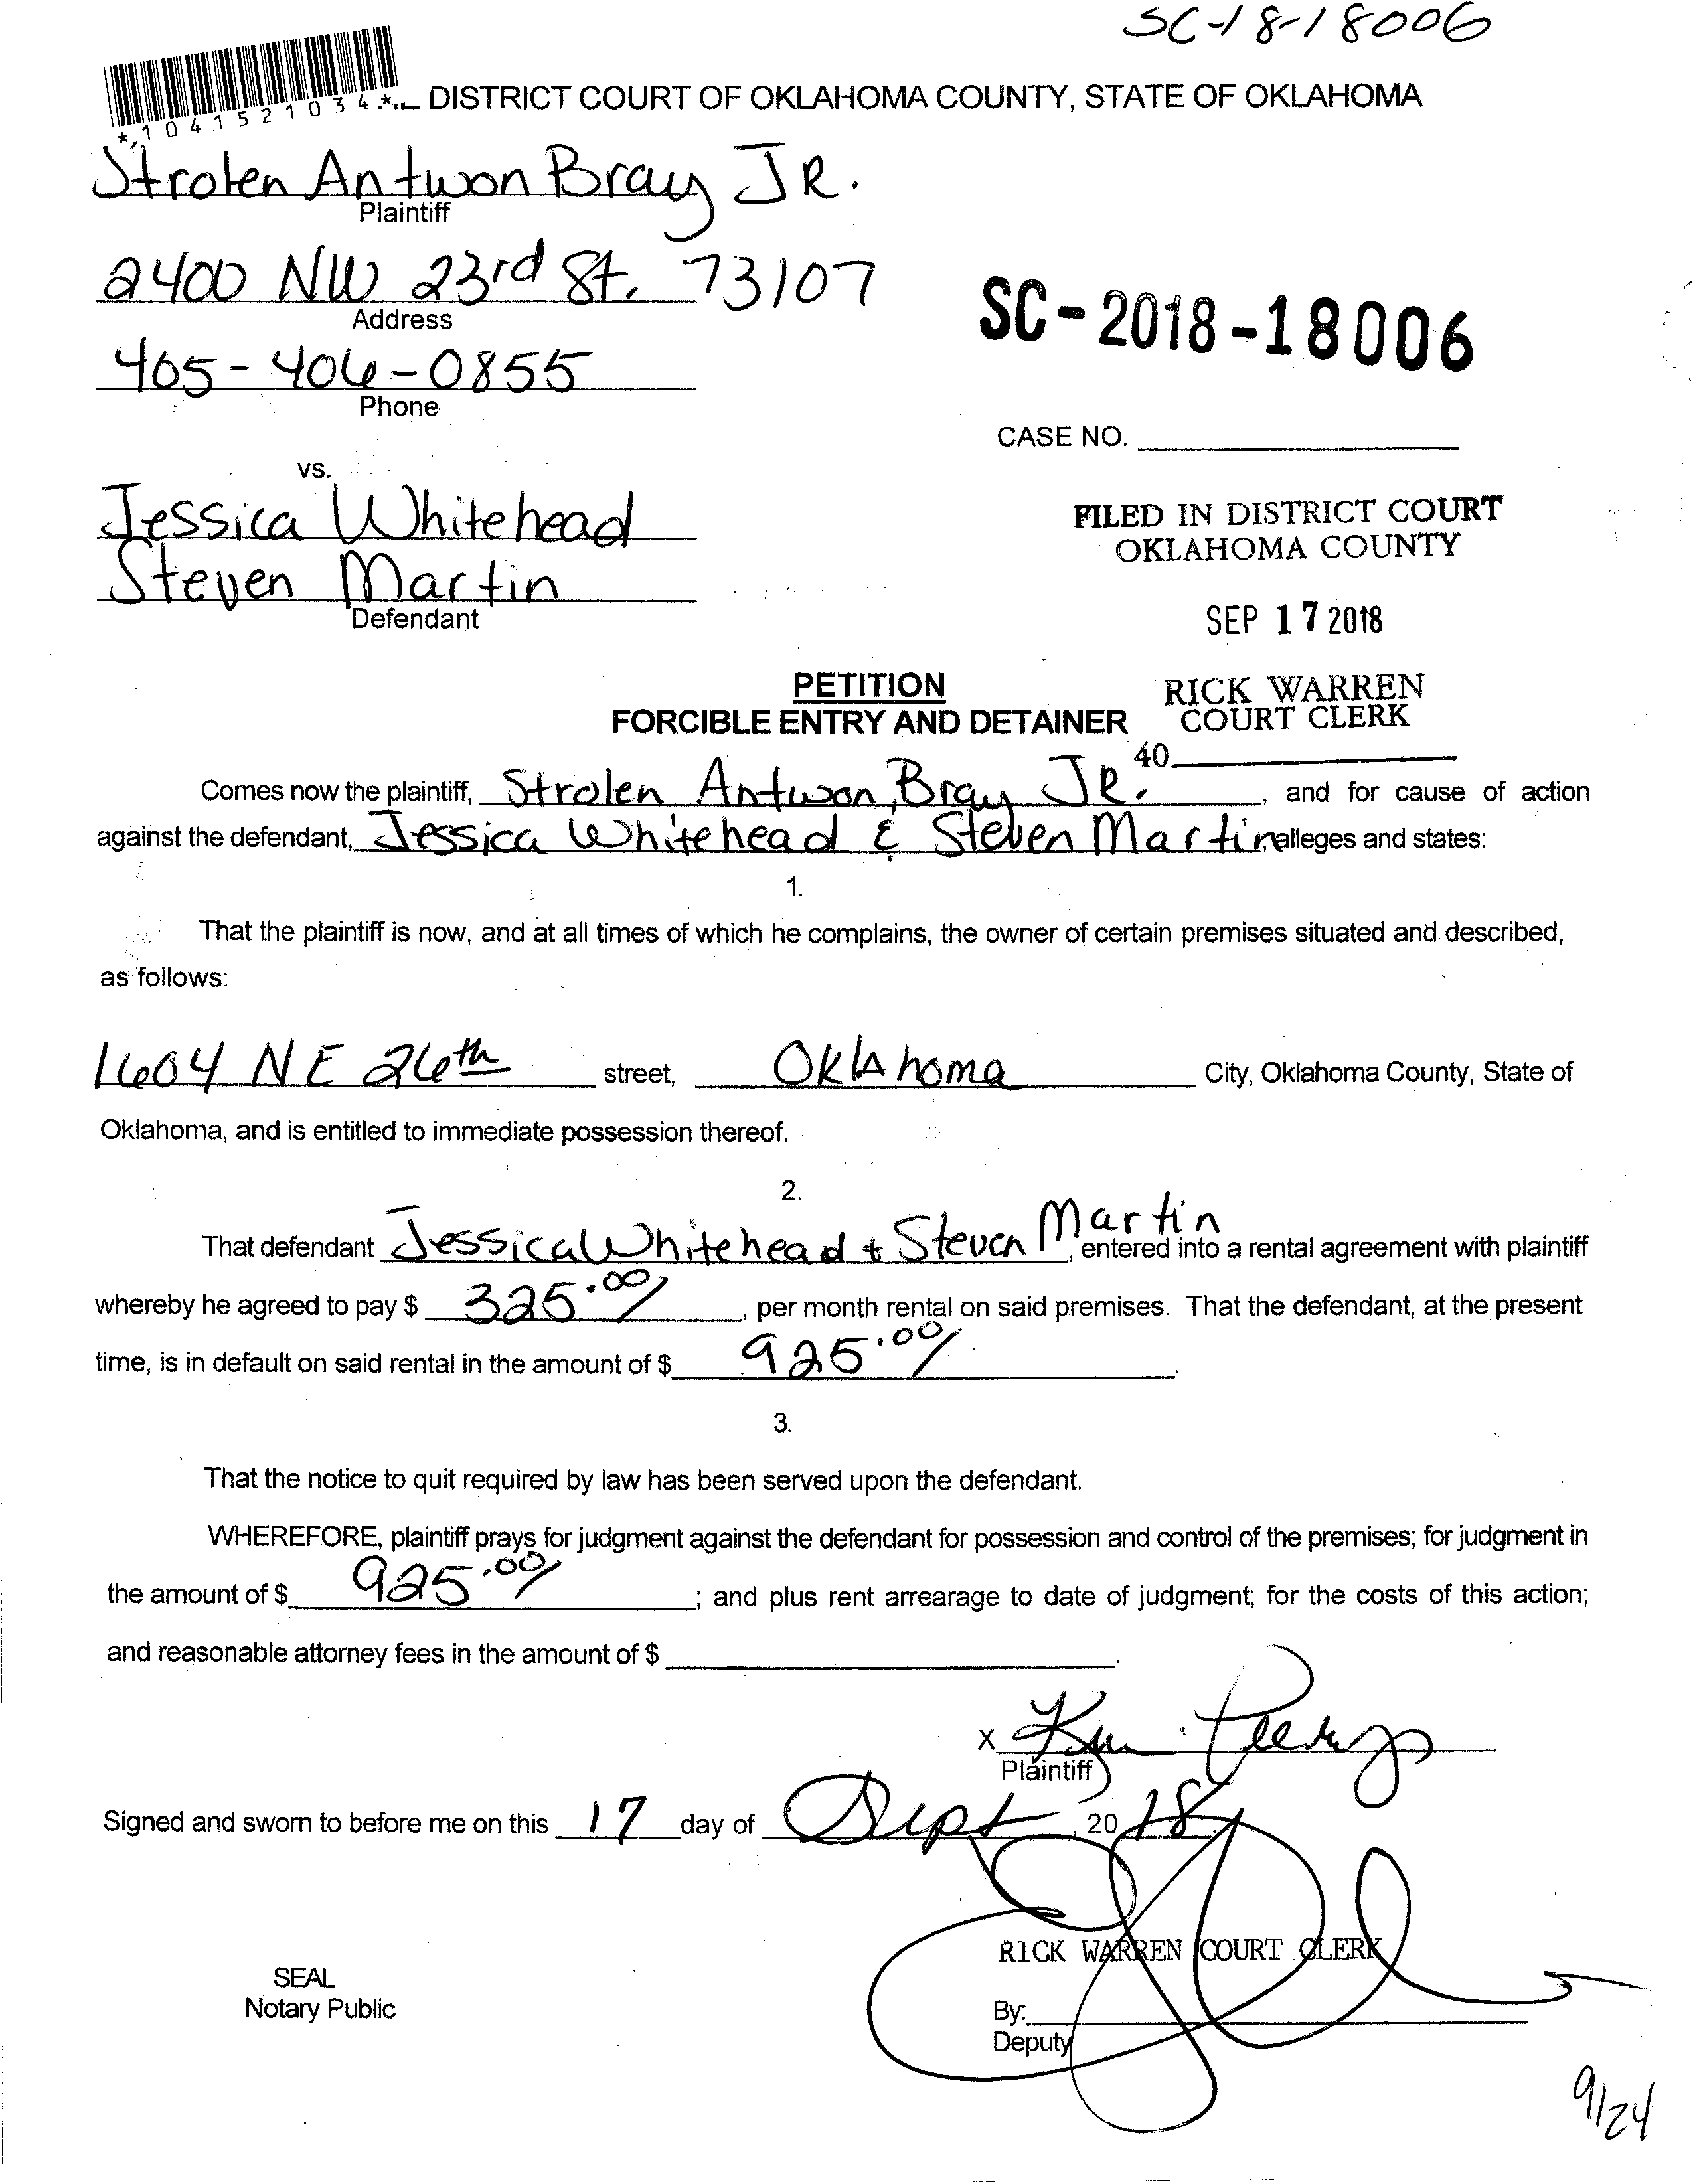 SC-18-18006
*1041521034*
DISTRICT COURT OF OKLAHOMA COUNTY, STATE OF OKLAHOMA
Strolen Antwon Bray JR.
Plaintiff
2400 NW 23rd St. 73107
Address
405-406-0855
Phone
SC-2018-18006
CASE NO.
vs.
Jessica Whitehead
Steven Martin
Defendant
FILED IN DISTRICT COURT
OKLAHOMA COUNTY
SEP 17 2018
RICK WARREN
COURT CLERK
40
PETITION
FORCIBLE ENTRY AND DETAINER
Comes now the plaintiff, Strolen Antwon Bray JR. , and for cause of action
against the defendant, Jessica Whitehead & Steven Martin alleges and states:
1.
That the plaintiff is now, and at all times of which he complains, the owner of certain premises situated and described,
as follows:
1604 NE 26th street, Oklahoma City, Oklahoma County, State of
Oklahoma, and is entitled to immediate possession thereof.
2.
That defendant Jessica Whitehead + Steven Martin, entered into a rental agreement with plaintiff
whereby he agreed to pay $ 325.00/ , per month rental on said premises. That the defendant, at the present
time, is in default on said rental in the amount of $ 925.00/ .
3.
That the notice to quit required by law has been served upon the defendant.
WHEREFORE, plaintiff prays for judgment against the defendant for possession and control of the premises; for judgment in
the amount of $ 925.00/ ; and plus rent arrearage to date of judgment; for the costs of this action;
and reasonable attorney fees in the amount of $ .
X
Plaintiff
Signed and sworn to before me on this 17 day of Sept , 20 18.
RICK WARREN COURT CLERK
SEAL
Notary Public
By:
Deputy
9/24